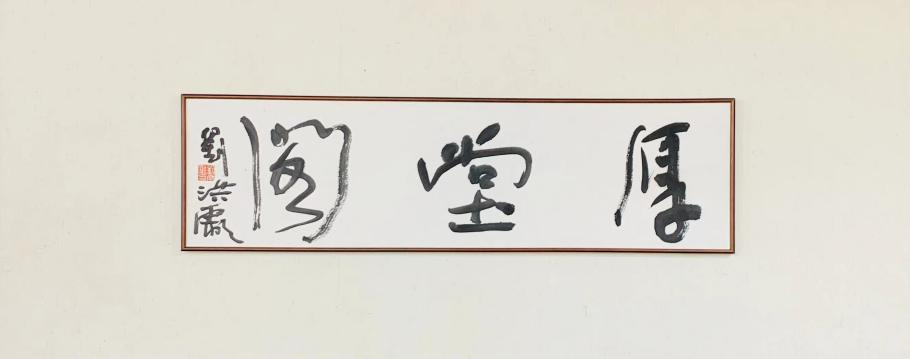 厚堂阁
劉洪彪